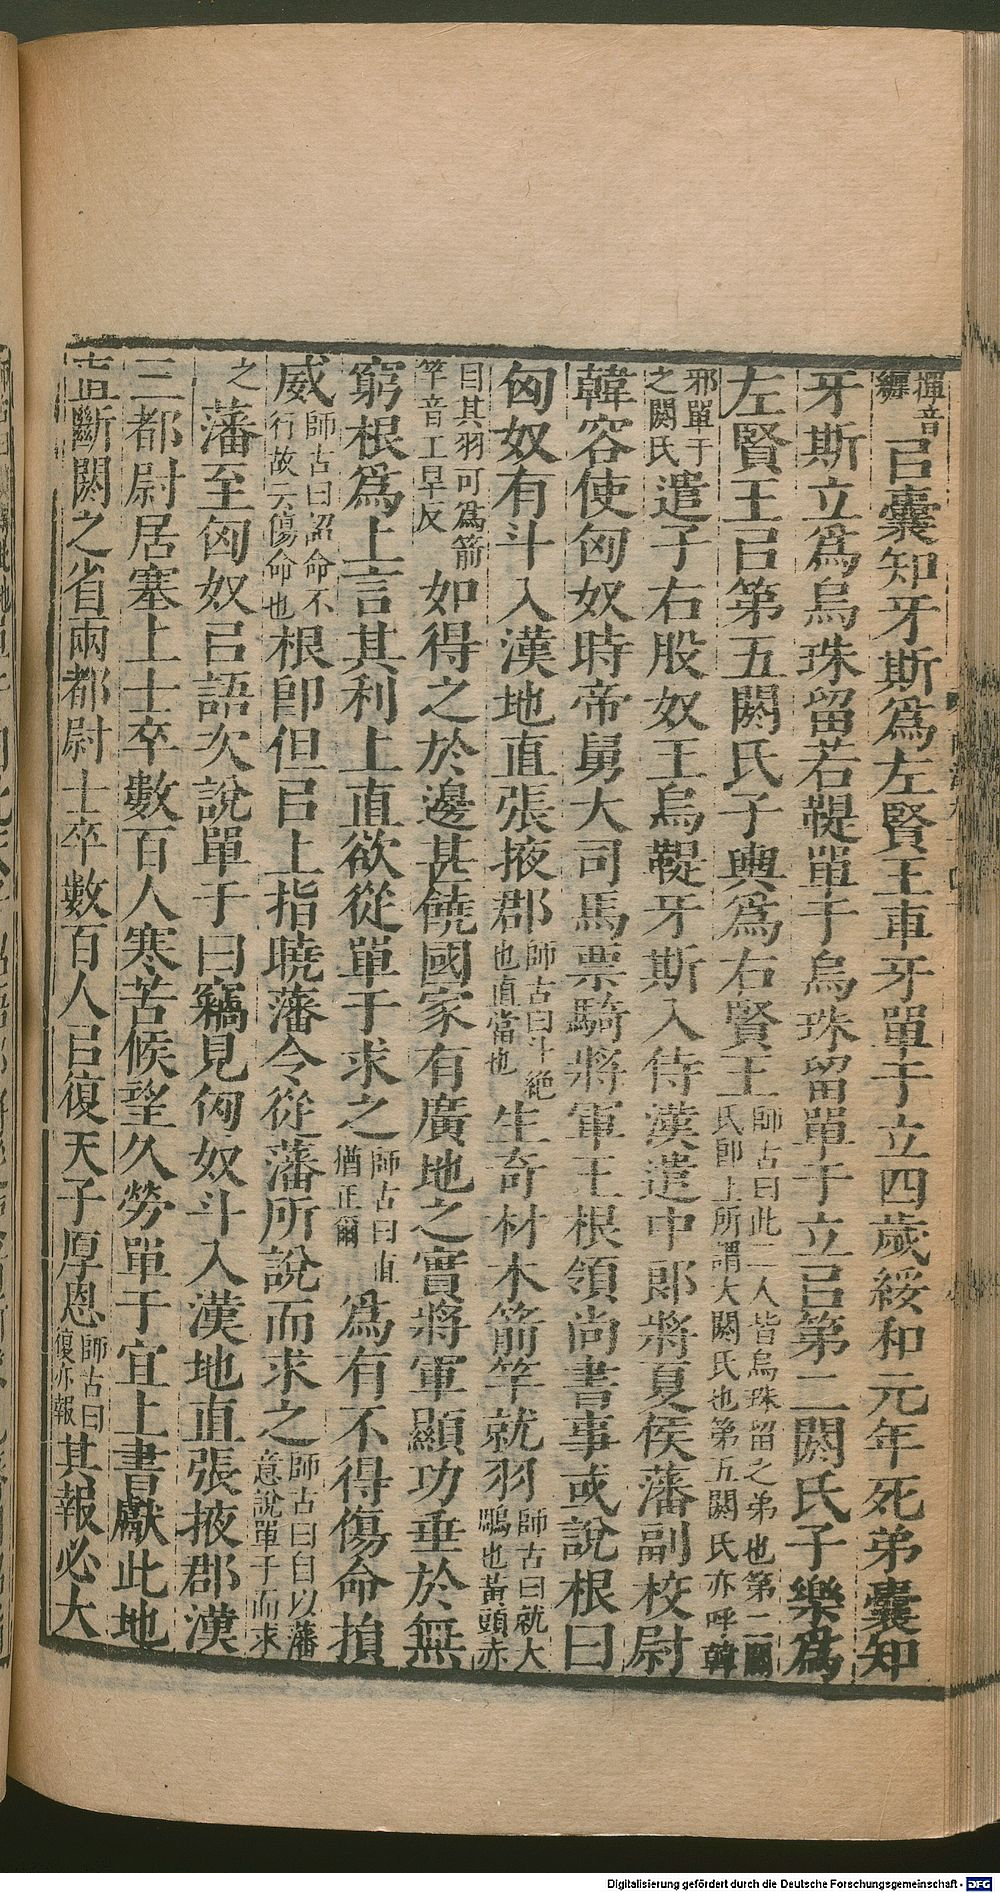 揮音
纏㠯囊知牙斯爲左賢王車牙單于立四歲綏和元年死弟囊知
牙斯立爲烏珠留若鞮單于烏珠留單于立㠯第二閼氏子樂爲
左賢王㠯第五閼氏子輿爲右賢王師古曰此二人皆烏珠留之弟也第二閼氏卽上所謂大閼氏也第五閼氏亦呼韓
邪單于之閼氏遣子右股奴王烏鞮牙斯入侍漢遣中郞將夏侯藩副校尉
韓容使匈奴時帝舅大司馬票騎將軍王根領尚書事或說根曰
匈奴有斗入漢地直張掖郡師古曰斗絕也直當也生奇材木箭竿就羽師古曰就大鵰也黃頭赤
目其羽可爲箭竿音工旱反如得之於邊甚饒國家有廣地之實將軍顯功垂於無
窮根爲上言其利上直欲從單于求之師古曰直猶正爾爲有不得傷命損
威師古曰詔命不行故云傷命也根卽但㠯上指曉藩令從藩所說而求之師古曰自以藩意說單于而求
之藩至匈奴㠯語次說單于曰竊見匈奴斗入漢地直張掖郡漢
三都尉居塞上士卒數百人寒苦候望久勞單于宜上書獻此地
直斷閼之省兩都尉士卒數百人㠯復天子厚恩師古曰復亦報其報必大
Digitalisierung gefördert durch die Deutsche Forschungsgemeinschaft - DFG